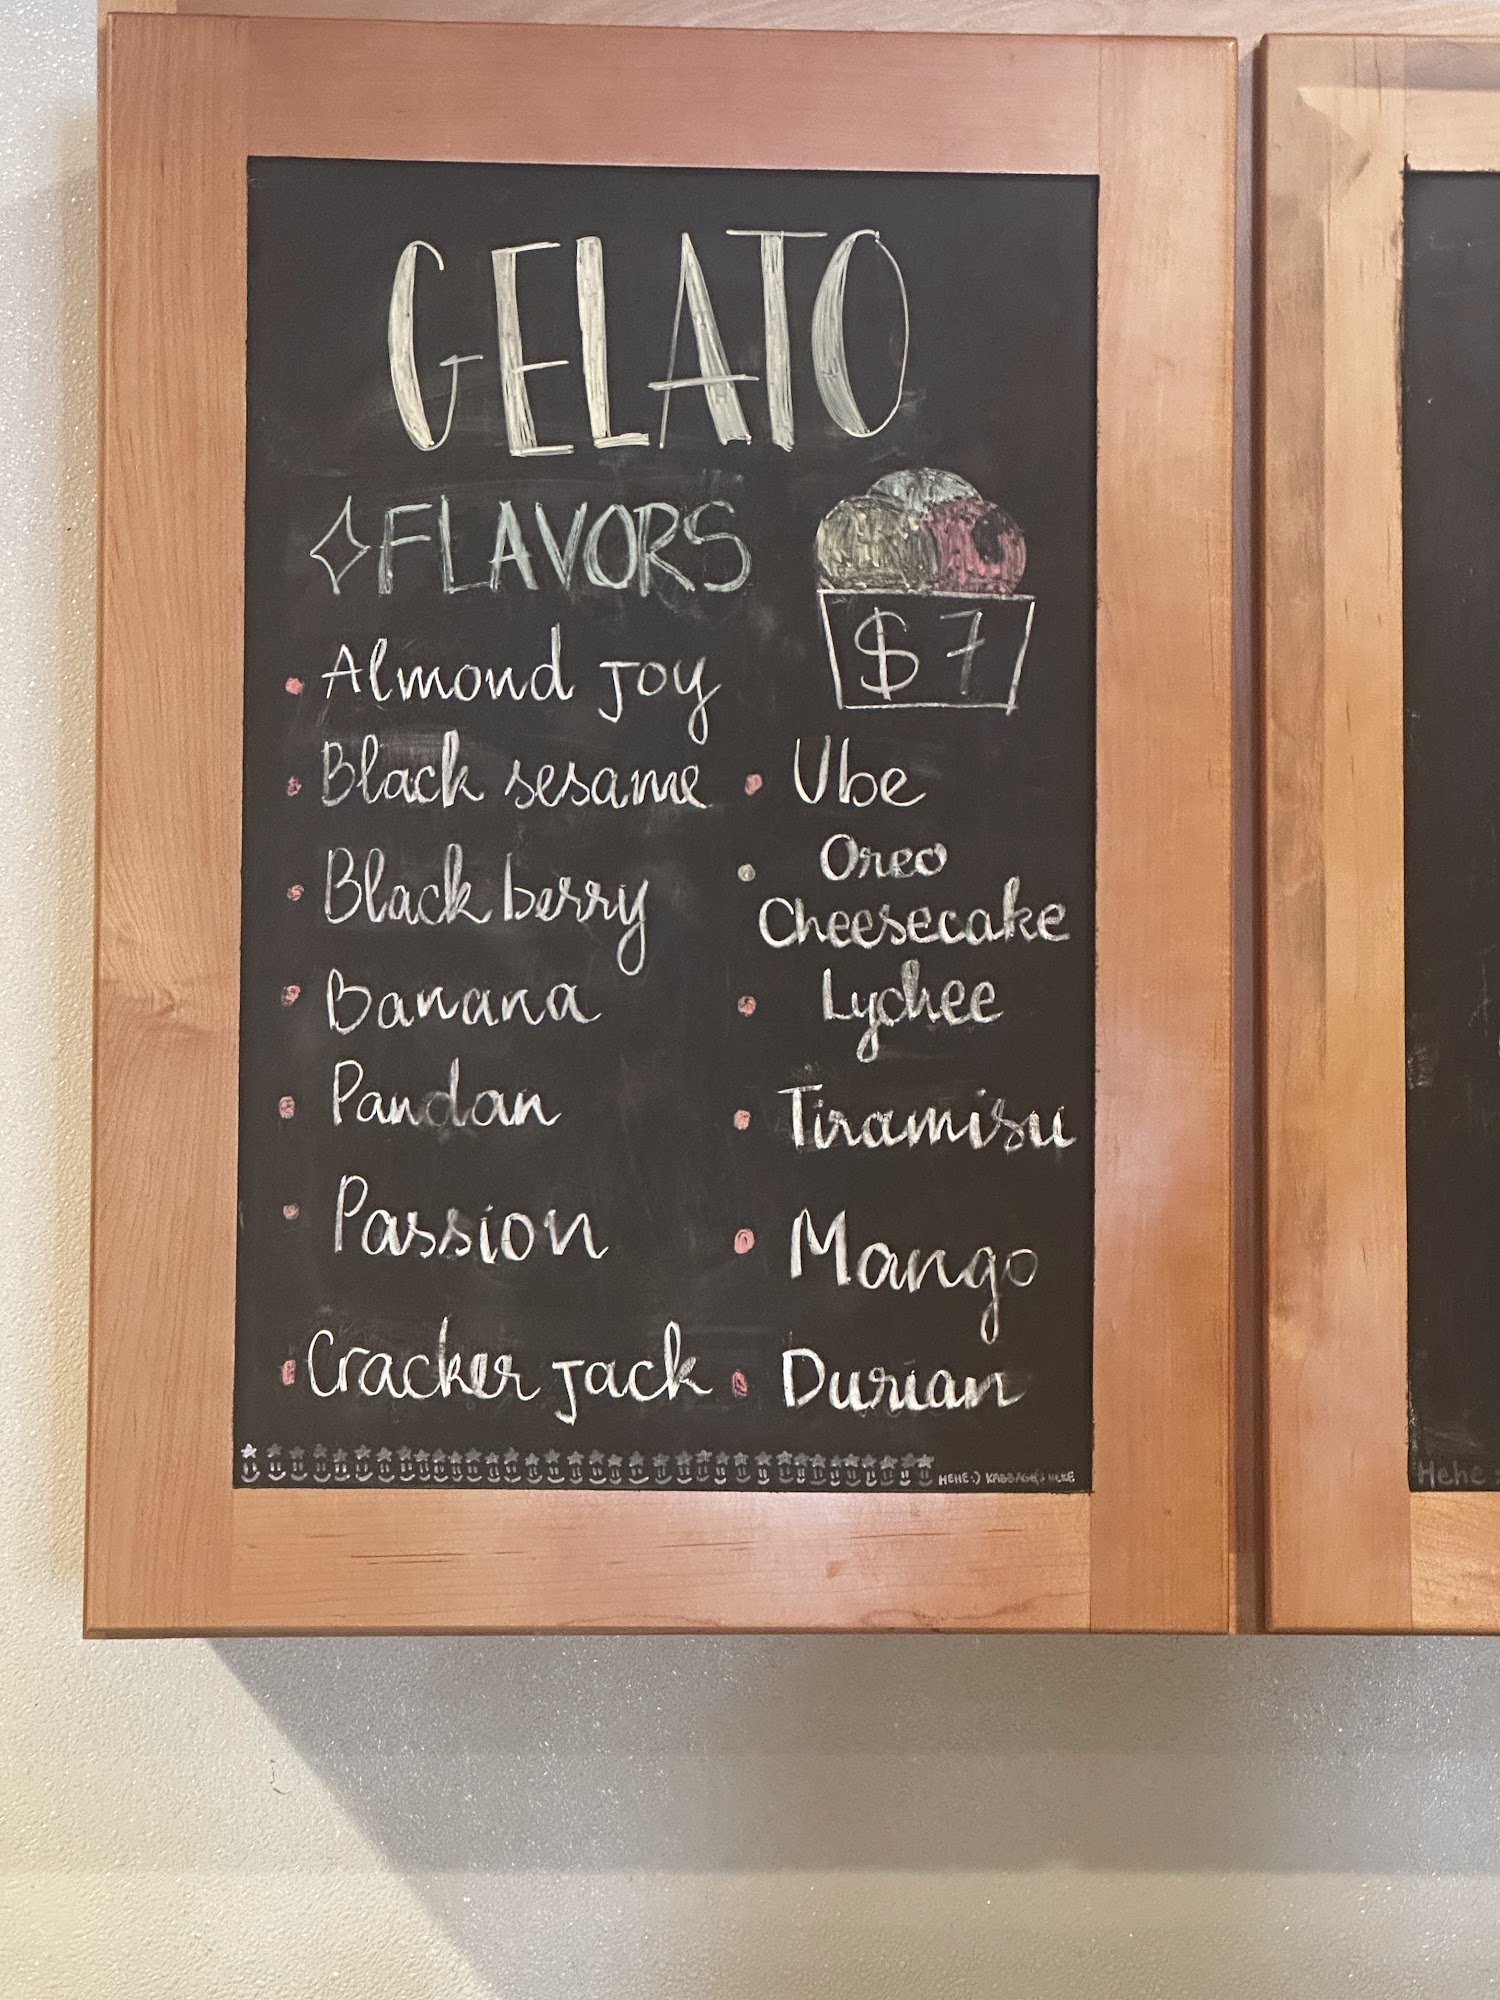 GELATO
FLAVORS
$7
• Almond Joy
• Black sesame
• Black berry
• Banana
• Pandan
• Passion
• Cracker Jack
• Ube
• Oreo
Cheesecake
• Lychee
• Tiramisu
• Mango
• Durian
HEHE :)
Hehe